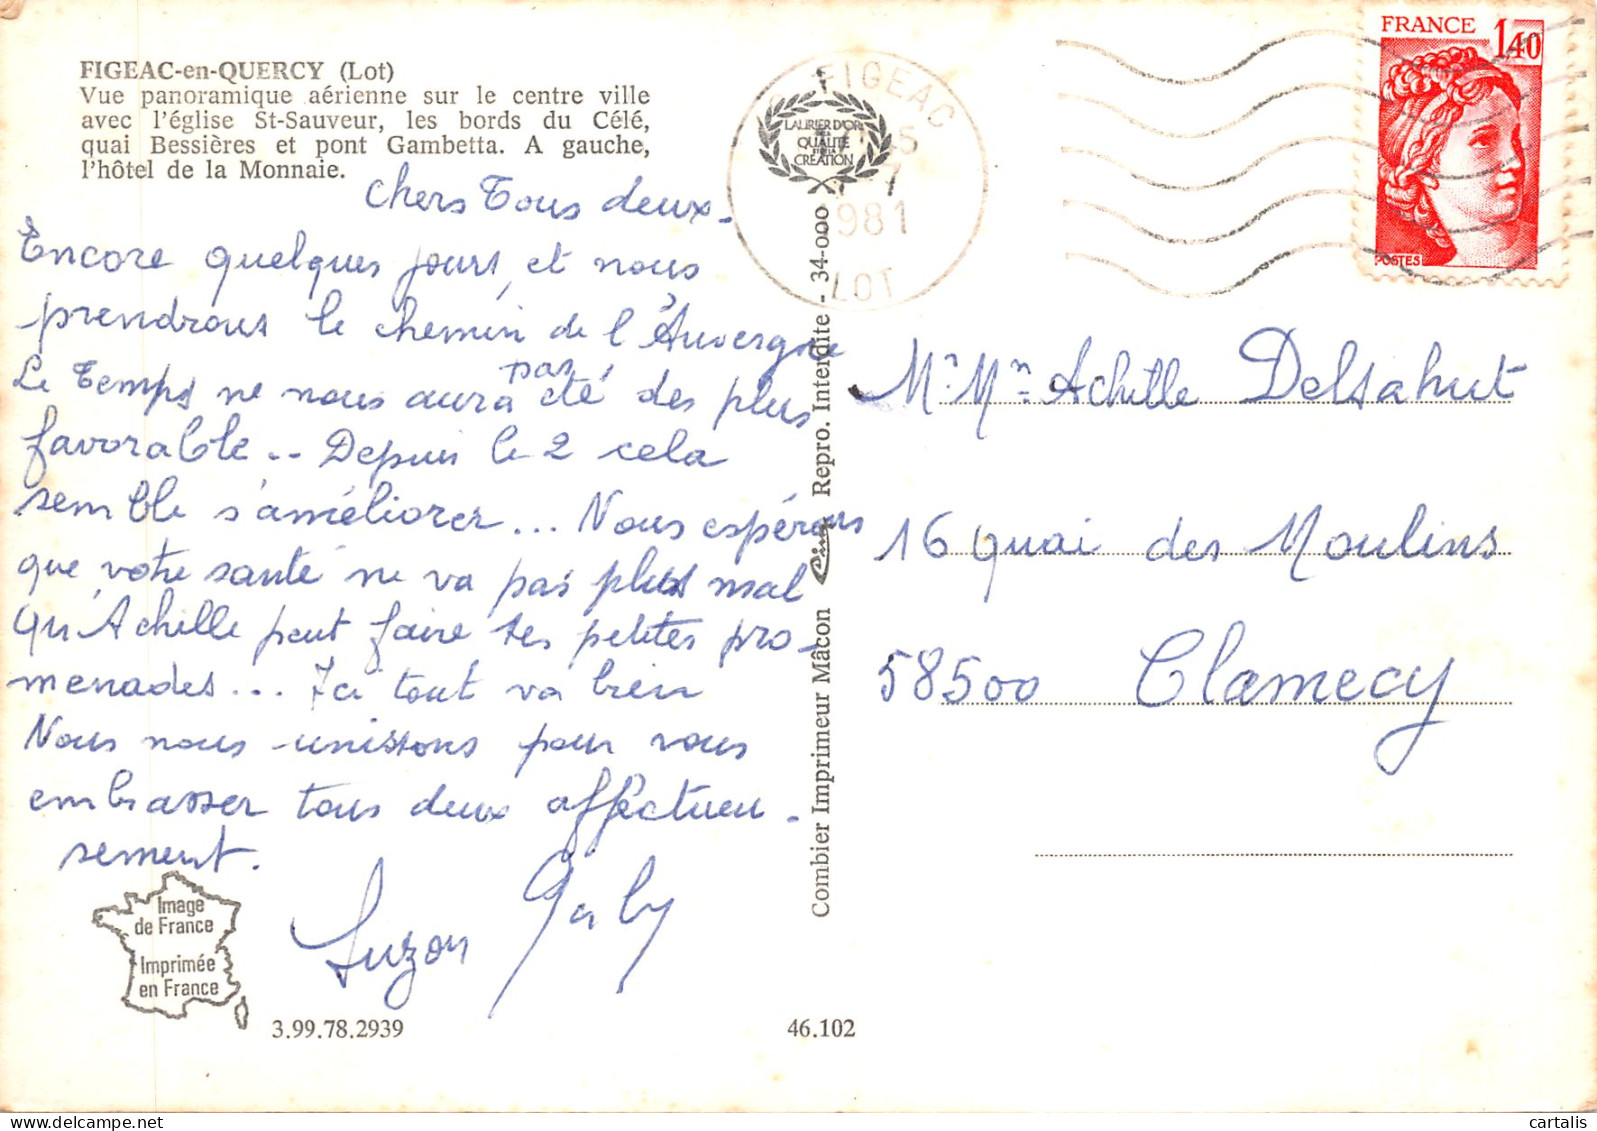 FIGEAC-en-QUERCY (Lot)
Vue panoramique aérienne sur le centre ville
avec l'église St-Sauveur, les bords du Célé,
quai Bessières et pont Gambetta. A gauche,
l'hôtel de la Monnaie.
Chers Tous deux.
Encore quelques jours, et nous
prendrons le chemin de l'Auvergne
Le Temps ne nous aura pas été des plus
favorable.. Depuis le 2 cela
semble s'améliorer... Nous espérons
que votre santé ne va pas plus mal
qu'Achille peut faire ses petites pro-
menades... Ici tout va bien
Nous nous unissons pour vous
embrasser tous deux affectueu-
sement.
Suzon Gaby
Image
de France
Imprimée
en France
3.99.78.2939
46.102
Combier Imprimeur Mâcon Cim Repro. Interdite - 34-000
LAURIER D'OR
DE LA
QUALITÉ
ET DE LA
CRÉATION
FIGEAC
1981
LOT
FRANCE 1,40
POSTES
Mr Mme Achille Delsahut
16 quai des Moulins
58500 Clamecy
cartalis